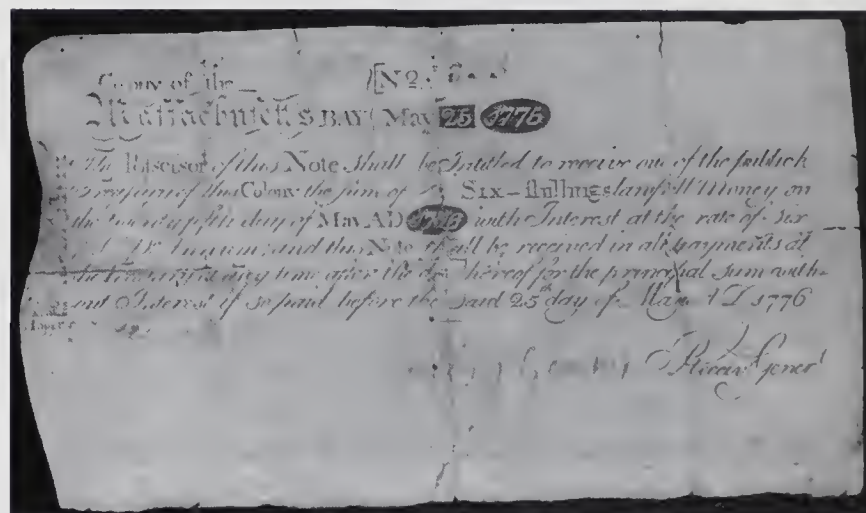 Colony of the [No.
Massachusetts BAY May 25 1775
The Possessor of this Note Shall be Intitled to receive out of the publick
Treasury of this Colony the sum of Six-shillings lawfull Money on
the twenty fifth day of May AD with Interest at the rate of six
Annum; and this Note shall be received in all payments at
the Treasury at any time after the hereof for the principal Sum with-
out Interest if so paid before the said 25th day of May AD 1776
Receivr Generl